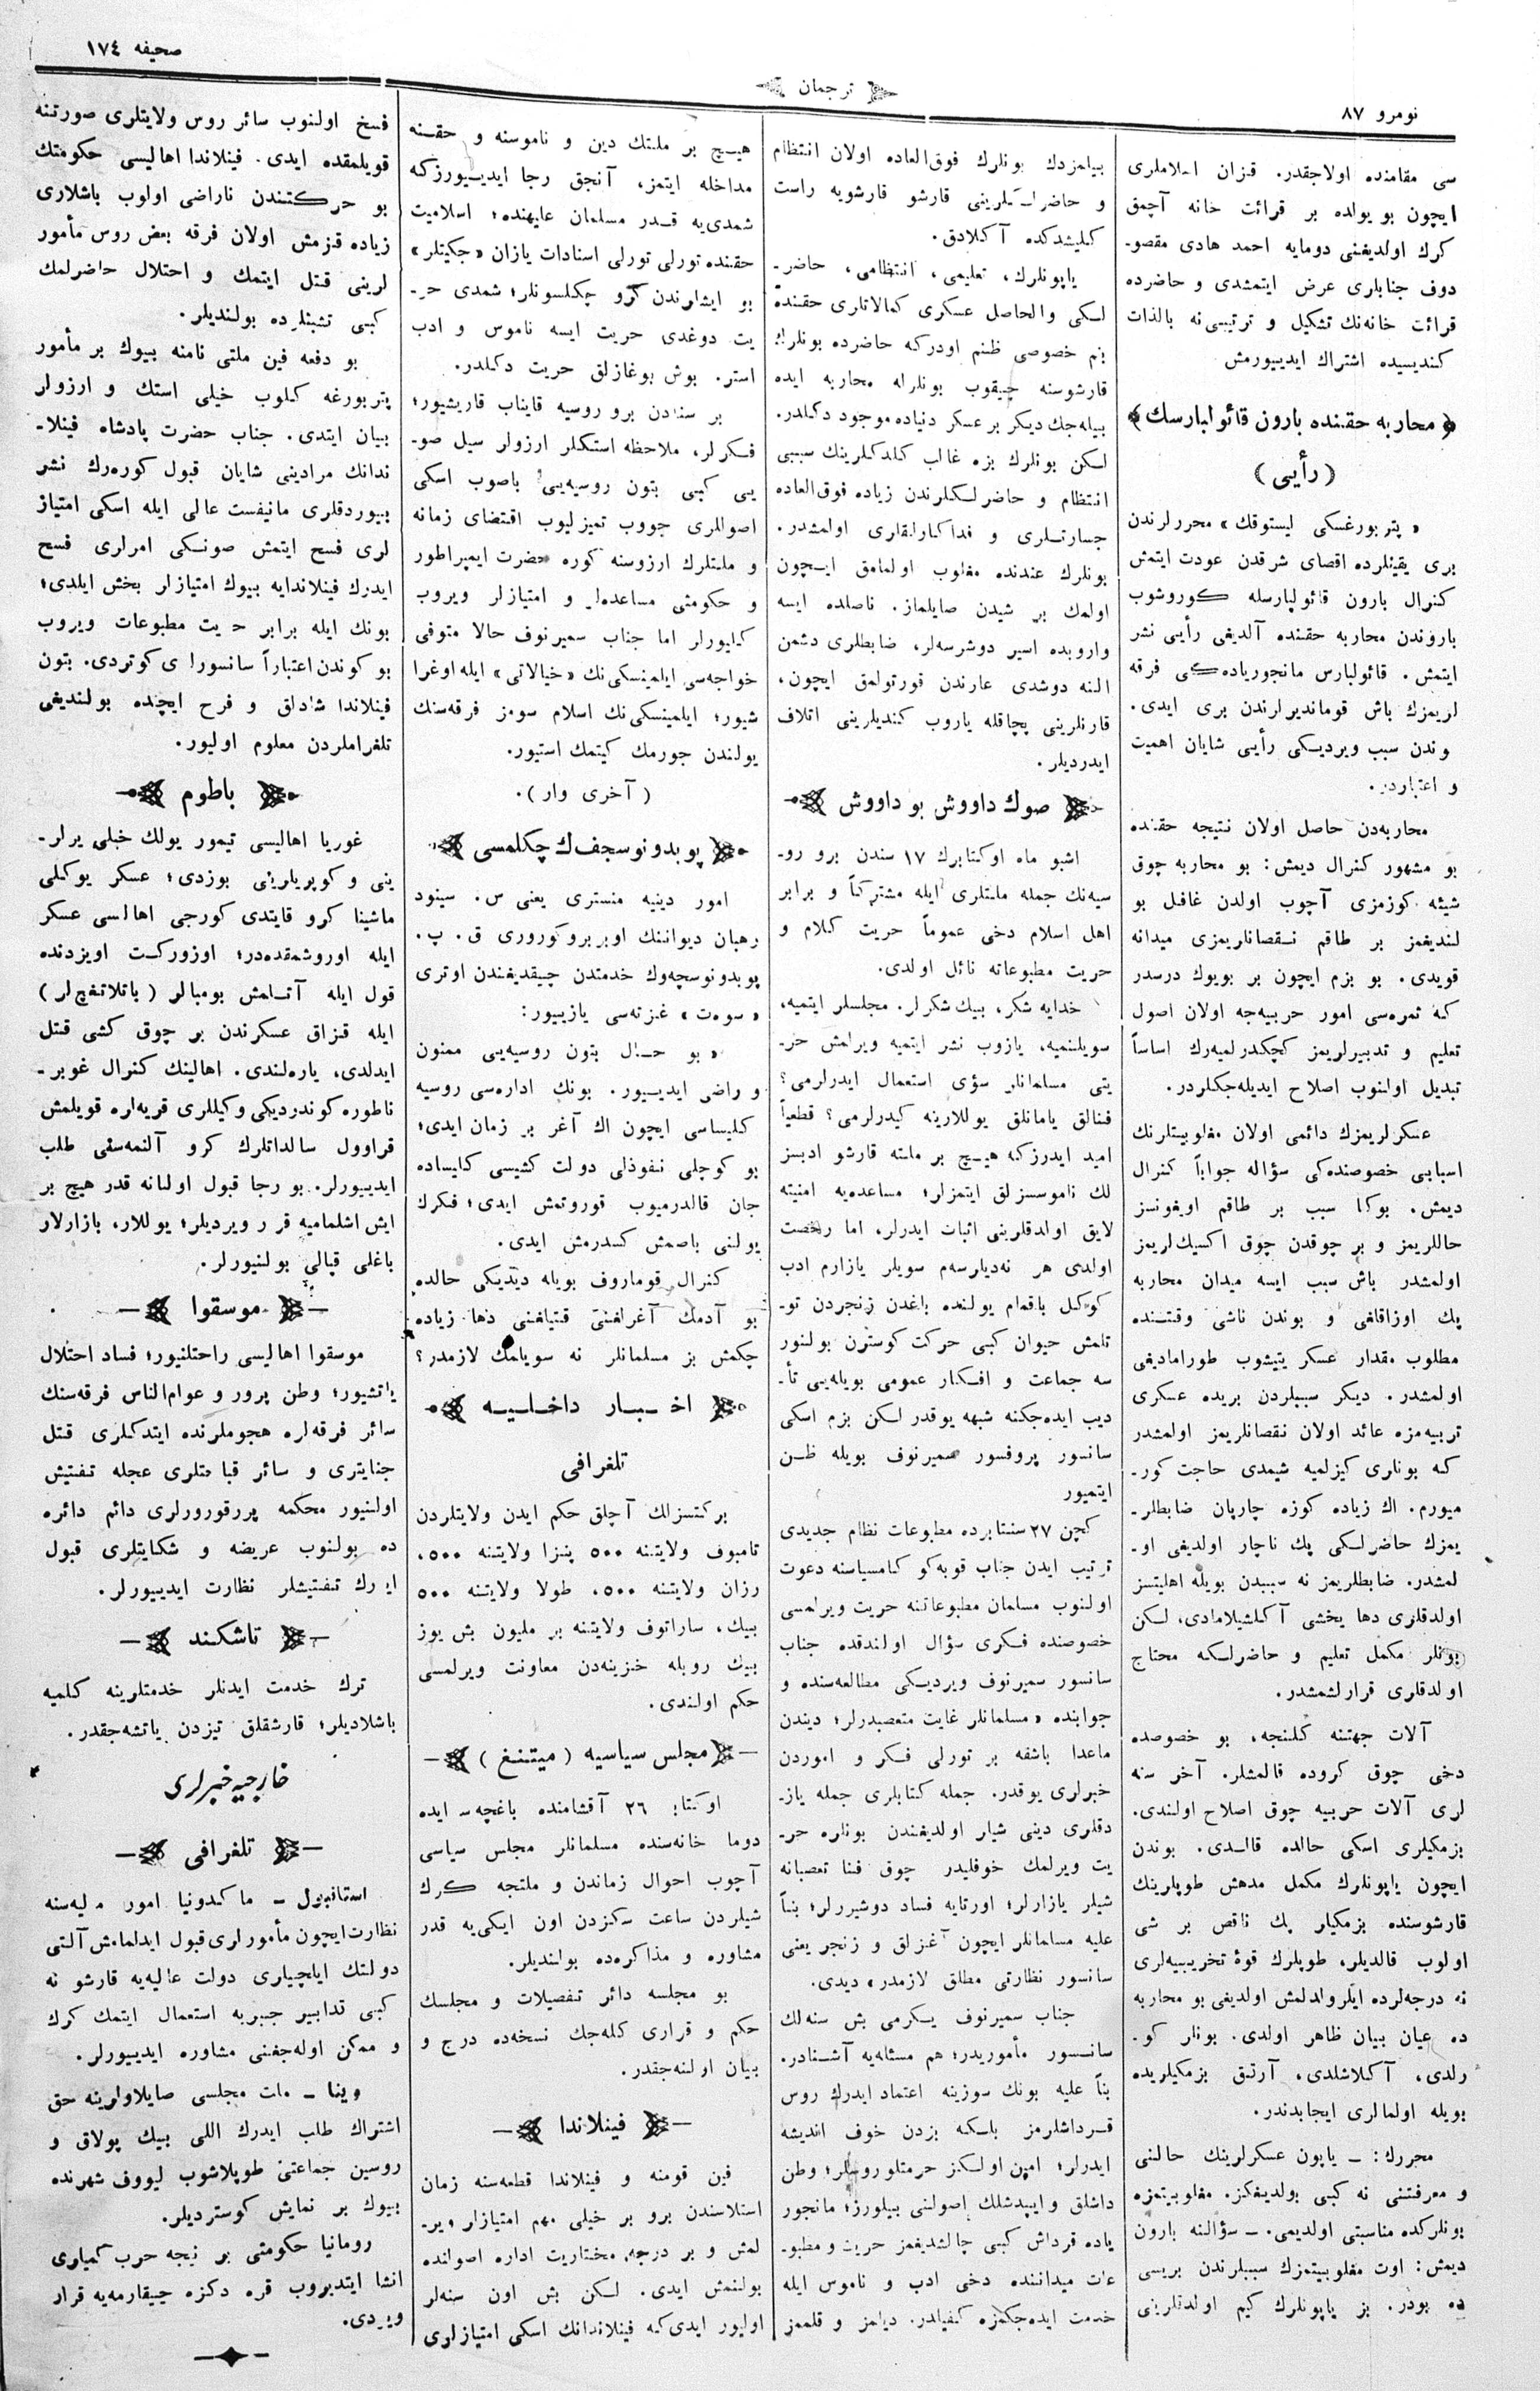 نومرو ٨٧
ترجمان
صحیفه ١٧٤
سی مقامنده اولاجقدر. قزان اسلاملری
ایچون بو یولده بر قرائت خانه آچمق
کرك اولدیغنی دومایه احمد هادی مقصو-
دوف جنابلری عرض ایتمشدی و حاضرده
قرائت خانه‌نك تشکیل و ترتیبی‌نه بالذات
کندیسیده اشتراك ایدییورمش
﴿ محاربه حقنده بارون قائولبارسك ﴾
( رأیی )
« پتربورغسکی لیستوقك » محررلرندن
بری یقینلرده اقصای شرقدن عودت ایتمش
کنرال بارون قائولبارسله کوروشوب
باروندن محاربه حقنده آلدیغی رأیی نشر
ایتمش. قائولبارس مانجوریاده‌کی فرقه
لریمزك باش قوماندیرلرندن بری ایدی.
وندن سبب ویردیکی رأیی شایان اهمیت
و اعتباردر.
محاربه‌دن حاصل اولان نتیجه حقنده
بو مشهور کنرال دیمش: بو محاربه چوق
شیئه کوزمزی آچوب اولدن غافل بو
لندیغمز بر طاقم نقصانلریمزی میدانه
قویدی. بو بزم ایچون بر بویوك درسدر
که ثمره‌سی امور حربیه‌جه اولان اصول
تعلیم و تدبیرلریمز کچکدرلمیه‌رك اساساً
تبدیل اولنوب اصلاح ایدیله‌جکلردر.
عسکرلریمزك دائمی اولان مغلوبیتلرنك
اسبابی خصوصنده‌کی سؤاله جواباً کنرال
دیمش. بوکا سبب بر طاقم اویغونسز
حاللریمز و بر چوقدن چوق اکسیك‌لریمز
اولمشدر باش سبب ایسه میدان محاربه
پك اوزاقلغی و بوندن ناشی وقتنده
مطلوب مقدار عسکر یتیشوب طورامادیغی
اولمشدر. دیکر سببلردن بریده عسکری
تربیه‌مزه عائد اولان نقصانلریمز اولمشدر
که بونلری کیزلمیه شیمدی حاجت کور-
میورم. اك زیاده کوزه چارپان ضابطلر-
یمزك حاضرلسکی پك ناچار اولدیغی او-
لمشدر. ضابطلریمز نه سببدن بویله اهلیتسز
اولدقلری دها یخشی آکلشیلامادی، لسکن
بونلر مکمل تعلیم و حاضرلسکه محتاج
اولدقلری قرارلشمشدر.
آلات جهتنه کلنجه، بو خصوصده
دخی چوق کروده قالمشلر. آخر سنه
لری آلات حربیه چوق اصلاح اولندی.
بزمکیلری اسکی حالده قالدی. بوندن
ایچون یاپونلرك مکمل مدهش طوپلرینك
قارشوسنده بزمکیلر پك ناقص بر شی
اولوب قالدیلر، طوپلرك قوۀ تخریبیه‌لری
نه درجه‌لرده ایلرولدلمش اولدیغی بو محاربه
ده عیان بیان ظاهر اولدی. بونلر کو-
رلدی، آکلاشلدی، آرتق بزمکیلریده
بویله اولمالری ایجابدندر.
محررك: - یاپون عسکرلرینك حالنی
و معرفتنی نه کبی بولدیغکز. مغلوبیتمزه
بونلرکده مناسبتی اولدیمی. - سؤالنه بارون
دیمش: اوت مغلوبیتمزك سببلرندن بریسی
ده بودر. بز یاپونلرك کیم اولدقلرینی
بیلمزدك بونلرك فوق‌العاده اولان انتظام
و حاضرلسکلرینی قارشو قارشویه راست
کلیشدکده آکلادق.
یاپونلرك، تعلیمی، انتظامی، حاضر-
لسکی والحاصل عسکری کمالاتلری حقنده
بم خصوصی ظنم اودرکه حاضرده بونلرك
قارشوسنه چیقوب بونلرله محاربه ایده
بیله‌جك دیکر بر عسکر دنیاده موجود دکلدر.
لسکن بونلرك بزه غالب کلدکلرینك سببی
انتظام و حاضرلسکلرندن زیاده فوق‌العاده
جسارتلری و فداکارلقلری اولمشدر.
بونلرك عندنده مغلوب اولمامق ایچون
اولمك بر شیدن صایلماز. ناصلده ایسه
وارویده اسیر دوشرسه‌لر، ضابطلری دشمن
النه دوشدی عارندن قورتولمق ایچون،
قارنلرینی پچاقله یاروب کندیلرینی اتلاف
ایدردیلر.
صوك داووش بو داووش
اشبو ماه اوکتابرك ١٧ سندن برو رو-
سیه‌نك جمله ملتلری ایله مشترکاً و برابر
اهل اسلام دخی عموماً حریت کلام و
حریت مطبوعاته نائل اولدی.
خدایه شکر، بیك شکرلر. مجلسلر ایتمیه،
سویلنمیه، یازوب نشر ایتمیه ویرلمش حر-
یتی مسلمانلر سؤی استعمال ایدرلرمی؟
فنالق یامانلق یوللارینه کیدرلرمی؟ قطعیاً
امید ایدرزکه هیچ بر ملته قارشو ادبسز
لك ناموسسزلق ایتمزلر؛ مساعده‌یه امنیته
لایق اولدقلرینی اثبات ایدرلر، اما رخصت
اولدی هر نه‌دیلرسه‌م سویلر یازارم ادب
کوکل باقمام یولنده باغدن زنجردن تو-
تلمش حیوان کبی حرکت کوسترن بولنور
سه جماعت و افکار عمومی بویله‌یی تأ-
دیب ایده‌جکنه شبهه یوقدر لسکن بزم اسکی
سانسور پروفسور سمیرنوف بویله ظن
ایتمیور
کچن ٢٧ سنتابرده مطبوعات نظام جدیدی
ترتیب ایدن جناب قوبه‌کو کامسیاسنه دعوت
اولنوب مسلمان مطبوعاتنه حریت ویرلمسی
خصوصنده فکری سؤال اولندقده جناب
سانسور سمیرنوف ویردیکی مطالعه‌سنده و
جوابنده « مسلمانلر غایت متعصبدرلر؛ دیندن
ماعدا باشقه بر تورلی فکر و اموردن
خبرلری یوقدر. جمله کتابلری جمله یاز-
دقلری دینی شیلر اولدیغندن بونلره حر-
یت ویرلمك خوفلیدر چوق فنا تعصبانه
شیلر یازارلر؛ اورتایه فساد دوشیررلر؛ بنأ
علیه مسلمانلر ایچون آغزلق و زنجر یعنی
سانسور نظارتی مطلق لازمدر » دیدی.
جناب سمیرنوف یکرمی بش سنه‌لك
سانسور مأموریدر؛ هم مسئله‌یه آشنادر.
بنأ علیه بونك سوزینه اعتماد ایدرك روس
قرداشلرمز بلسکه بزدن خوف اندیشه
ایدرلر؛ امین اولسکز حرمتلو روسلر؛ وطن
داشلق و ایپدشلك اصولنی بیلورز؛ مانجور
یاده قرداش کبی چالشدیغمز حریت و مطبو-
عات میداننده دخی ادب و ناموس ایله
خدمت ایده‌جکمزه کفیلدر. دیلمز و قلممز
هیچ بر ملتك دین و ناموسنه و حقنه
مداخله ایتمز، آنجق رجا ایدییورزکه
شمدی‌یه قدر مسلمان علیهنده؛ اسلامیت
حقنده تورلی تورلی اسنادات یازان « جکیتلر »
بو ایشلرندن کرو چکلسونلر؛ شمدی حر-
یت دوغدی حریت ایسه ناموس و ادب
استر. بوش بوغازلق حریت دکلدر.
بر سنه‌دن برو روسیه قایناب قاریشیور؛
فکرلر، ملاحظه استکلر ارزولر سیل صو-
یی کبی بتون روسیه‌یی باصوب اسکی
اصوللری جووب تمیزلیوب اقتضای زمانه
و ملتلرك ارزوسنه کوره حضرت ایمپراطور
و حکومتی مساعده‌لر و امتیازلر ویروب
کلیورلر اما جناب سمیرنوف حالا متوفی
خواجه‌سی ایلمینسکی‌نك « خیالاتی » ایله اوغرا
شیور؛ ایلمینسکی‌نك اسلام سومز فرقه‌سنك
یولندن جورمك کیتمك استیور.
( آخری وار ).
پوبدونوسجف‌ك چکلمسی
امور دینیه منستری یعنی س. سینود
رهبان دیواننك اوبرپروکوروری ق. پ.
پوبدونوسچه‌وك خدمتدن چیقدیغندن اوتری
« سوه‌ت » غزته‌سی یازییور:
« بو حال بتون روسیه‌یی ممنون
و راضی ایدییور. بونك اداره‌سی روسیه
کلیساسی ایچون اك آغر بر زمان ایدی؛
بو کوچلی نفوذلی دولت کشیسی کلیساده
جان قالدرمیوب قوروتمش ایدی؛ فکرك
یولنی باصمش کسدرمش ایدی.
کنرال قوماروف بویله دیدیکی حالده
بو آدمك آغرلغنی قتیلغنی دها زیاده
چکمش بز مسلمانلر نه سویلمك لازمدر؟
اخبار داخلیه
تلغرافی
برکتسزلك آچلق حکم ایدن ولایتلردن
تامبوف ولایتنه ٥٠٠ پنزا ولایتنه ٥٠٠،
رزان ولایتنه ٥٠٠، طولا ولایتنه ٥٠٠
بیك، ساراتوف ولایتنه بر ملیون بش یوز
بیك روبله خزینه‌دن معاونت ویرلمسی
حکم اولندی.
مجلس سیاسیه ( میتنغ )
اوکتابر ٢٦ آقشامنده باغچه‌سرایده
دوما خانه‌سنده مسلمانلر مجلس سیاسی
آچوب احوال زماندن و ملتجه کرك
شیلردن ساعت سکزدن اون ایکی‌یه قدر
مشاوره و مذاکره‌ده بولندیلر.
بو مجلسه دائر تفصیلات و مجلسك
حکم و قراری کله‌جك نسخه‌ده درج و
بیان اولنه‌جقدر.
فینلاندا
فین قومنه و فینلاندا قطعه‌سنه زمان
استلاسندن برو بر خیلی مهم امتیازلر ویر-
لمش و بر درجه مختاریت اداره اصولنده
بولنمش ایدی. لسکن بش اون سنه‌لر
اولیور ایدی‌که فینلاندانك اسکی امتیازلری
فسخ اولنوب سائر روس ولایتلری صورتنه
قویلمقده ایدی. فینلاندا اهالیسی حکومتك
بو حرکتندن ناراضی اولوب باشلاری
زیاده قزمش اولان فرقه بعض روس مأمور
لرینی قتل ایتمك و احتلال حاضرلمك
کبی تشبثلرده بولندیلر.
بو دفعه فین ملتی نامنه بیوك بر مأمور
پتربورغه کلوب خیلی استك و ارزولر
بیان ایتدی. جناب حضرت پادشاه فینلا-
ندانك مرادینی شایان قبول کوره‌رك نشر
بیوردقلری مانیفست عالی ایله اسکی امتیاز
لری فسخ ایتمش صونکی امرلری فسخ
ایدرك فینلاندایه بیوك امتیازلر بخش ایلدی؛
بونك ایله برابر حریت مطبوعات ویروب
بو کوندن اعتباراً سانسورلی کوتردی. بتون
فینلاندا شادلق و فرح ایچنده بولندیغی
تلغراملردن معلوم اولیور.
باطوم
غوریا اهالیسی تیمور یولك خیلی یرلر-
ینی و کوپریلرینی بوزدی؛ عسکر یوکلی
ماشینا کرو قایتدی کورجی اهالسی عسکر
ایله اوروشمقده‌در؛ اوزورکت اویزدنده
قول ایله آتلمش بومبالر ( پاتلانغچ‌لر )
ایله قزاق عسکرندن بر چوق کشی قتل
ایدلدی، یاره‌لندی. اهالینك کنرال غوبر-
ناطوره کوندردیکی وکیللری قریه‌لره قویلمش
قراوول سالداتلرك کرو آلنمه‌سنی طلب
ایدییورلر. بو رجا قبول اولنانه قدر هیچ بر
ایش اشلمامیه قرار ویردیلر؛ یوللار، بازارلار
باغلی قپالی بولنیورلر.
موسقوا
موسقوا اهالیسی راحتلنیور؛ فساد احتلال
یاتشیور؛ وطن پرور و عوام‌الناس فرقه‌سنك
سائر فرقه‌لره هجوملرنده ایتدکلری قتل
جنایتری و سائر قباحتلری عجله تفتیش
اولنیور محکمه پررقورورلری دائم دائره
ده بولنوب عریضه و شکایتلری قبول
ایدرك تفتیشلر نظارت ایدییورلر.
تاشکند
ترك خدمت ایدنلر خدمتلرینه کلمیه
باشلادیلر؛ قارشقلق تیزدن یاتشه‌جقدر.
خارجیه خبرلری
تلغرافی
استانبول - ماکدونیا امور مالیه‌سنه
نظارت ایچون مأمورلری قبول ایدلمامش آلتی
دولتك ایلچیلری دولت عالیه‌یه قارشو نه
کبی تدابیر جبریه استعمال ایتمك کرك
و ممکن اوله‌جغنی مشاوره ایدییورلر.
وینا - ملت مجلسی صایلاولرینه حق
اشتراك طلب ایدرك اللی بیك پولاق و
روسین جماعتی طوپلاشوب لیووف شهرنده
بیوك بر نمایش کوستردیلر.
رومانیا حکومتی بر نیجه حرب کمیلری
انشا ایتدیروب قره دکزه چیقارمه‌یه قرار
ویردی.